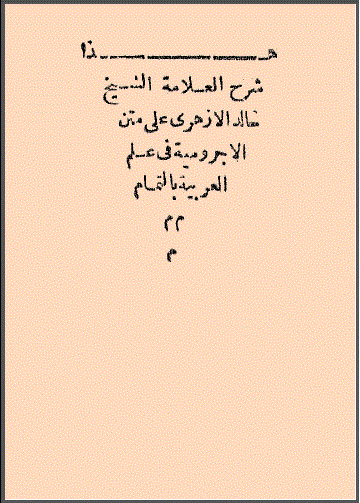 هـــــــــــــذا
شرح العلامة الشيخ
خالد الازهرى على متن
الاجرومية فى علم
العربية بالتمام
م م
م